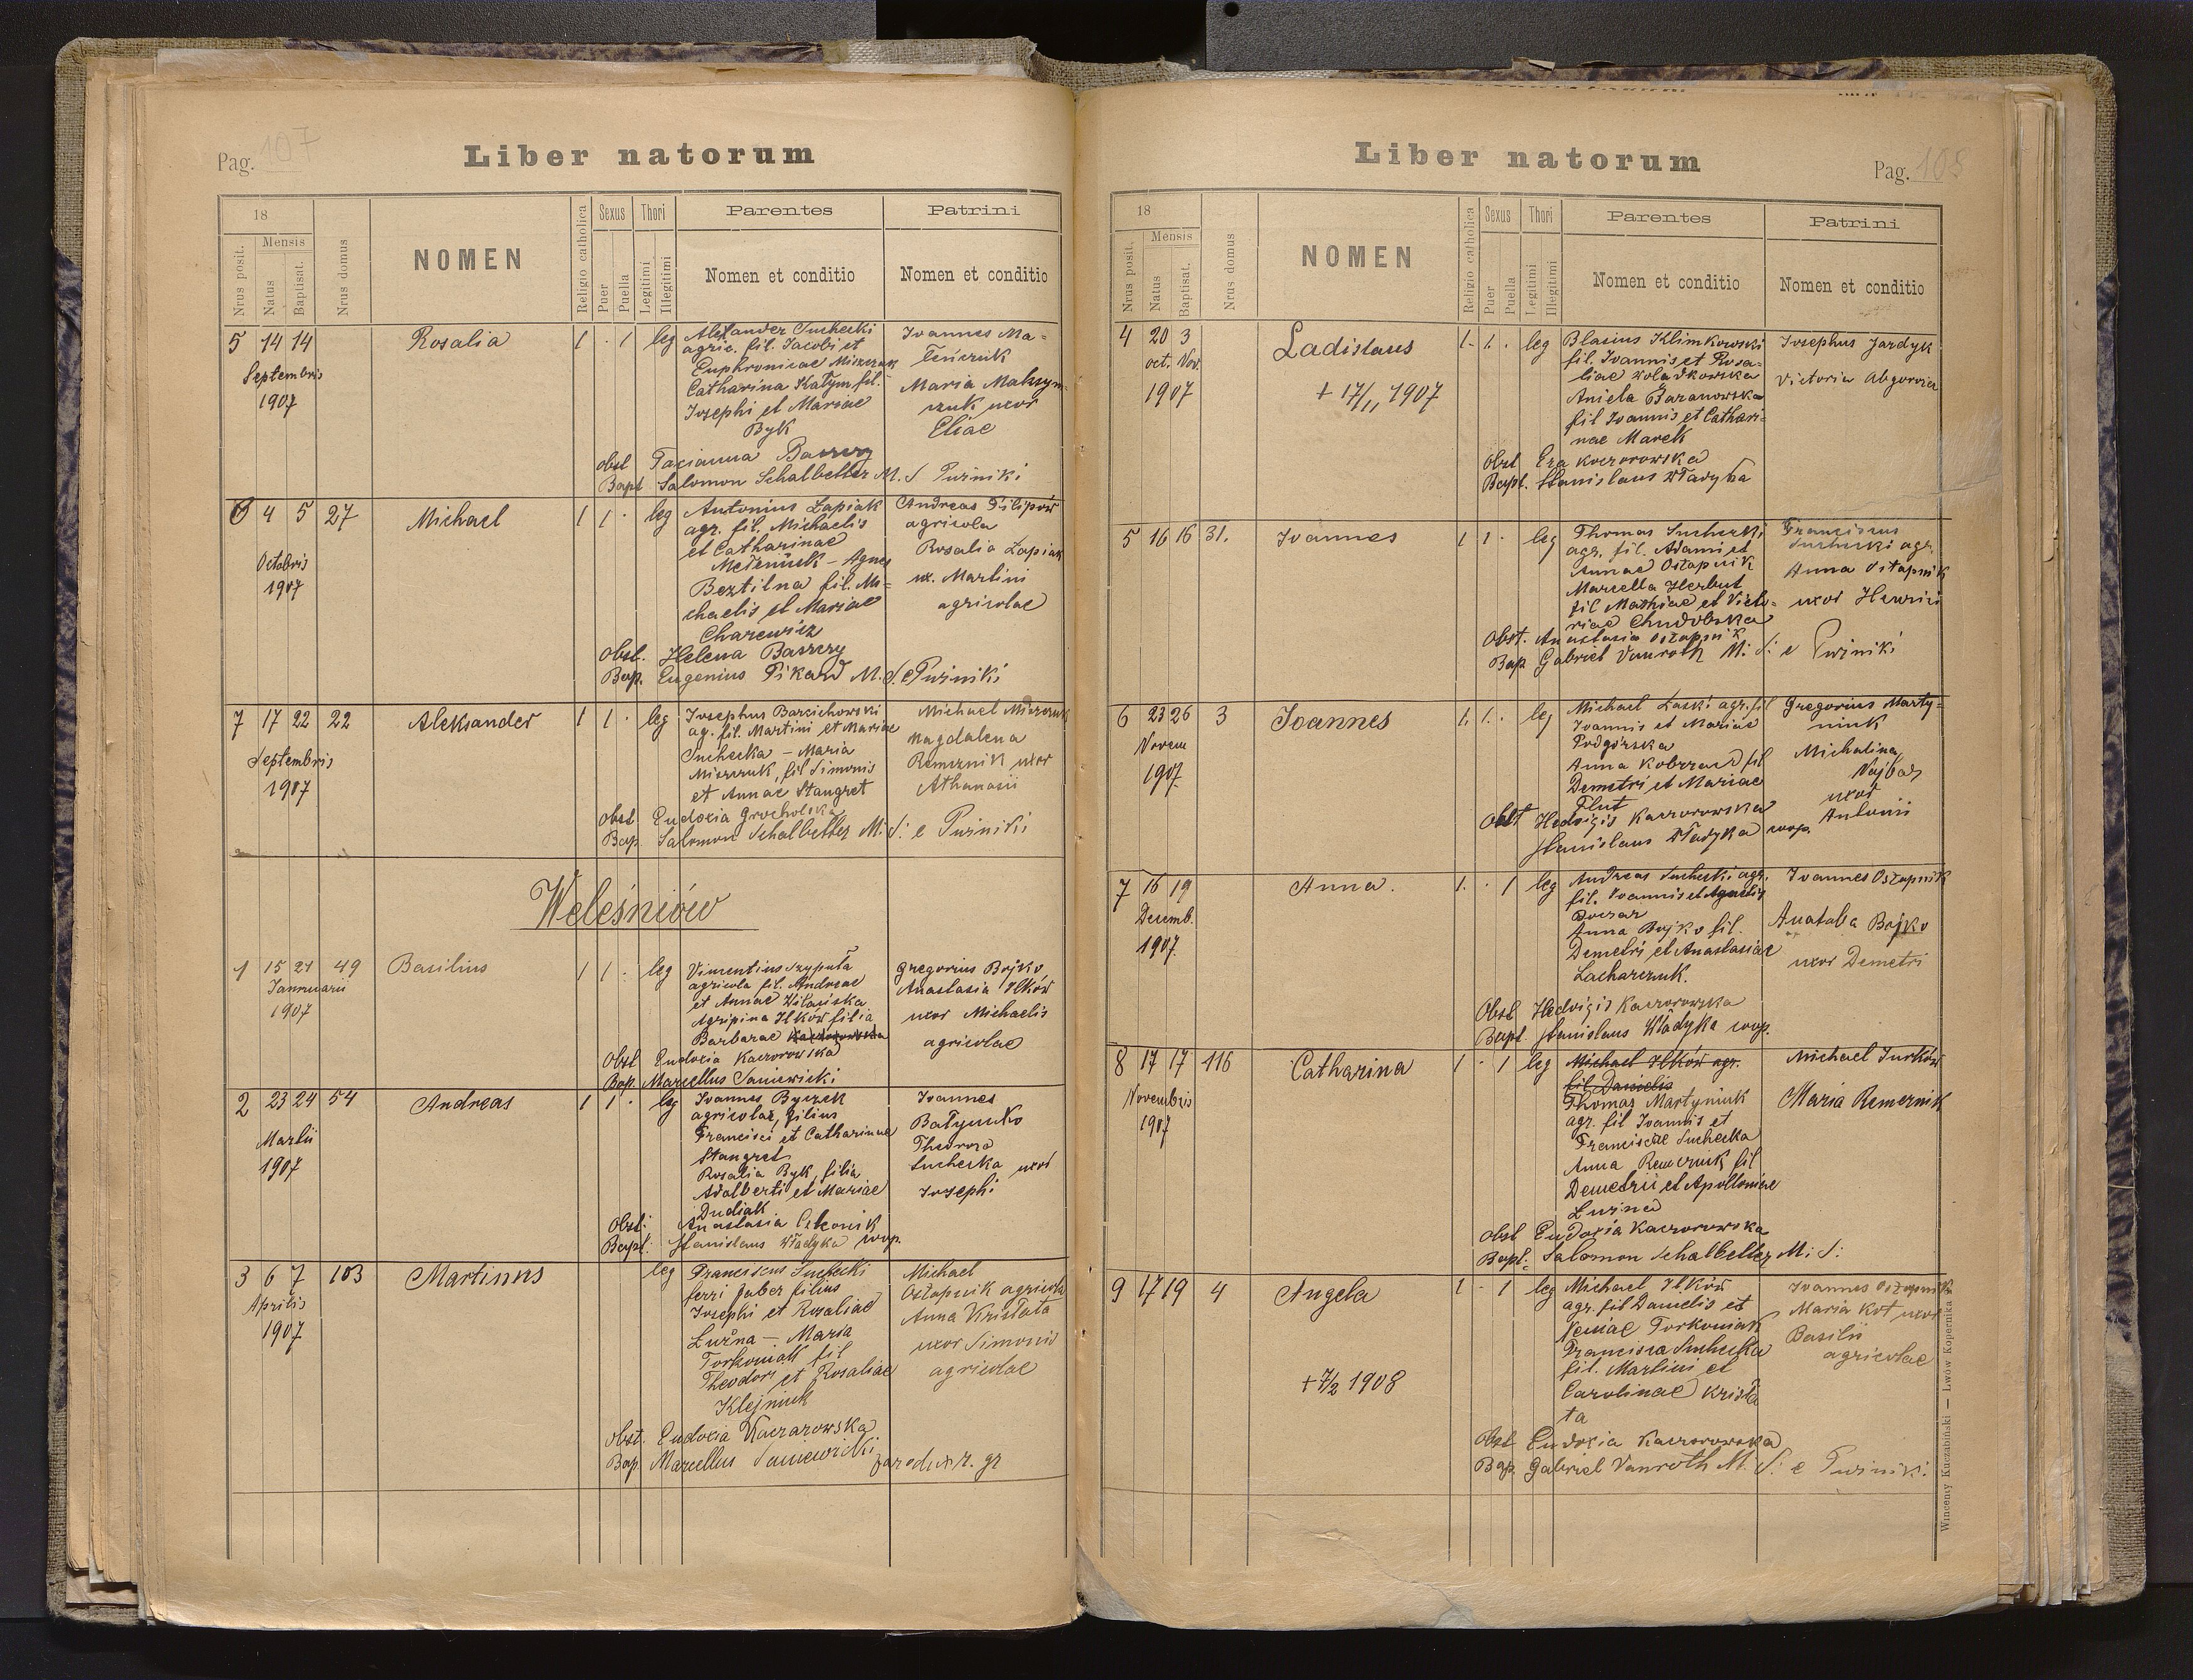 Pag. 107
Liber natorum
18
Nrus posit.
Mensis
Natus
Baptisat.
Nrus domus
NOMEN
Religio catholica
Sexus
Puer
Puella
Thori
Legitimi
Illegitimi
Parentes
Nomen et conditio
Patrini
Nomen et conditio
5 14 14 Rosalia 1 . 1 leg
Septembris
1907
Alexander Suchecki
agric. fil. Jacobi et
Euphroniae Miszczuk
Catharina Katym fil.
Josephi et Mariae
Byk
Joannes Ma-
Maria Maksym-
czuk uxor
Eliae
Obst Tacianna
Bapt Salomon Schalbetter M. S Pużniki
6 4 5 27 Michael 1 1 . leg
Octobris
1907
Antonius Łapiak
agr. fil. Michaelis
et Catharinae
- Agnes
Beztilna fil. Mi-
chaelis et Mariae
Charewicz
Andreas Filipów
agricola
Rosalia Łapiak
ux. Martini
agricolae
Obst. Helena
Bap. Eugenius Pikard M. S. e Pużniki
7 17 22 22 Aleksander 1 1 . leg
Septembris
1907
Josephus Barcichowski
ag. fil. Martini et Mariae
Suchecka - Maria
Miszczuk, fil Simonis
et Annae Stangret
Michael Miszczuk
Magdalena
Remeznik uxor
Athanasii
Obst Eudoxia Grocholska
Bap Salomon Schalbetter M. S: e Pużniki
Weleśniów
1 15 21 49 Basilius 1 1 . leg
Januarii
1907
Vincentius Szypuła
agricola fil. Andreae
et Annae
Agripina Ilków filia
Barbarae Kaczorowska
Gregorius Bojko
Anastasia Ilków
uxor Michaelis
agricolae
Obst Eudoxia Kaczorowska
Bap. Marcellus Saniewicki
2 23 24 54 Andreas 1 1 . leg
Martii
1907
Joannes Byczek
agricolae, filius
Francisci et Catharinae
Stangret
Rosalia Byk, filia
Adalberti et Mariae
Dudiak
Joannes
Theodora
Suchecka uxor
Josephi
Obst: Anastasia
Bapt: Stanislaus Władyka coop.
3 6 7 103 Martinus leg
Aprilis
1907
Franciscus Suchecki
ferri faber filius
Josephi et Rosaliae
Luźna - Maria
Torkoniak fil
Theodori et Rosaliae
Klejniuk
Michael
Ostapnik agricola
Anna Kristata
uxor Simonis
agricolae
Obst. Eudoxia Kaczarowska
Bap. Marcellus Saniewicki r. gr
Liber natorum
Pag. 108
18
Nrus posit.
Mensis
Natus
Baptisat.
Nrus domus
NOMEN
Religio catholica
Sexus
Puer
Puella
Thori
Legitimi
Illegitimi
Parentes
Nomen et conditio
Patrini
Nomen et conditio
4 20 3 Ladislaus 1. 1. . leg
oct. Nov.
1907
+ 17/11 1907
Blasius Klimkowski
fil. Joannis et Rosa-
liae
Aniela Baranowska
fil Joannis et Cathari-
nae Marek
Josephus Jardyk
Victoria
Obst Eva Kaczorowska
Bapt. Stanislaus Władyka
5 16 16 31. Joannes 1 1 . leg
Thomas Suchecki
agr. fil. Adami et
Annae Ostapnik
Marcella Herbut
fil Mathiae et Victo-
riae Chudobska
Franciscus
Suchecki agr.
Anna Ostapnik
uxor Henrici
Obst. Anastasia Ostapnik
Bap Gabriel Vanroth M: S: e Pużniki
6 23 26 3 Joannes 1. 1. . leg
Novem
1907.
Michael Laski agr. fil
Joannis et Mariae
Podgórska
Anna fil
Demetri et Mariae
Flut
Gregorius Marty-
niuk
Michalina
uxor
Antonii
Obst Hedvigis Kaczorowska
Stanislaus Władyka coop.
7 16 19 Anna. 1. . 1 leg
Decemb.
1907.
Andreas Suchecki agr.
fil. Joannis et Agnetis
Anna Bojko fil.
Demetri et Anastasiae
Zacharczuk.
Joannes Ostapnik
Bojko
uxor Demetri
Obst Hedvigis Kaczorowska
Bapt. Stanislaus Władyka coop.
8 17 17 116 Catharina 1 . 1 leg
Novembris
1907
Michael Ilków agr.
fil. Danielis
Thomas Martyniuk
agr. fil Joannis et
Franciscae Suchecka
Anna fil
Demetrii et Apolloniae
Luzna
Michael Jurków
Maria Remernik
Obst Eudoxia Kaczorowska
Bapt. Salomon Schalbetter M: S:
9 17 19 4 Angela 1 . 1 leg
+ 7/2 1908
Michael Ilków
agr. fil Danielis et
Torkoniak
Francisca Suchecka
fil. Martini et
Carolinae Krista
ta
Joannes Ostapnik
Maria Kot uxor
Basilii
agricolae
Obst Eudoxia Kaczorowska
Bap. Gabriel Vanroth M. S: e Pużniki.
Wincenty Kuczabiński — Lwów Kopernika